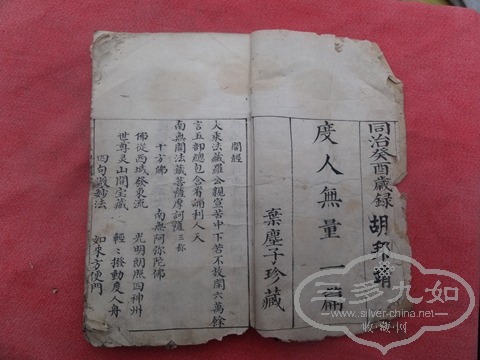 同治癸酉歲録 胡邦
度人無量一篇
棄塵子珍藏
開經
大乘法藏羅公親宣苦中下苦不放閑六萬餘
言五部總包含看誦利人天
南無開法藏菩薩摩訶薩三称
十方佛 南無阿弥陀佛
佛從西域發東流 光明朗照四神州
世尊灵山開宝藏 輕々撥動度人舟
四句妙法 如來方便門
三多九如
收藏网
www.silver-china.net